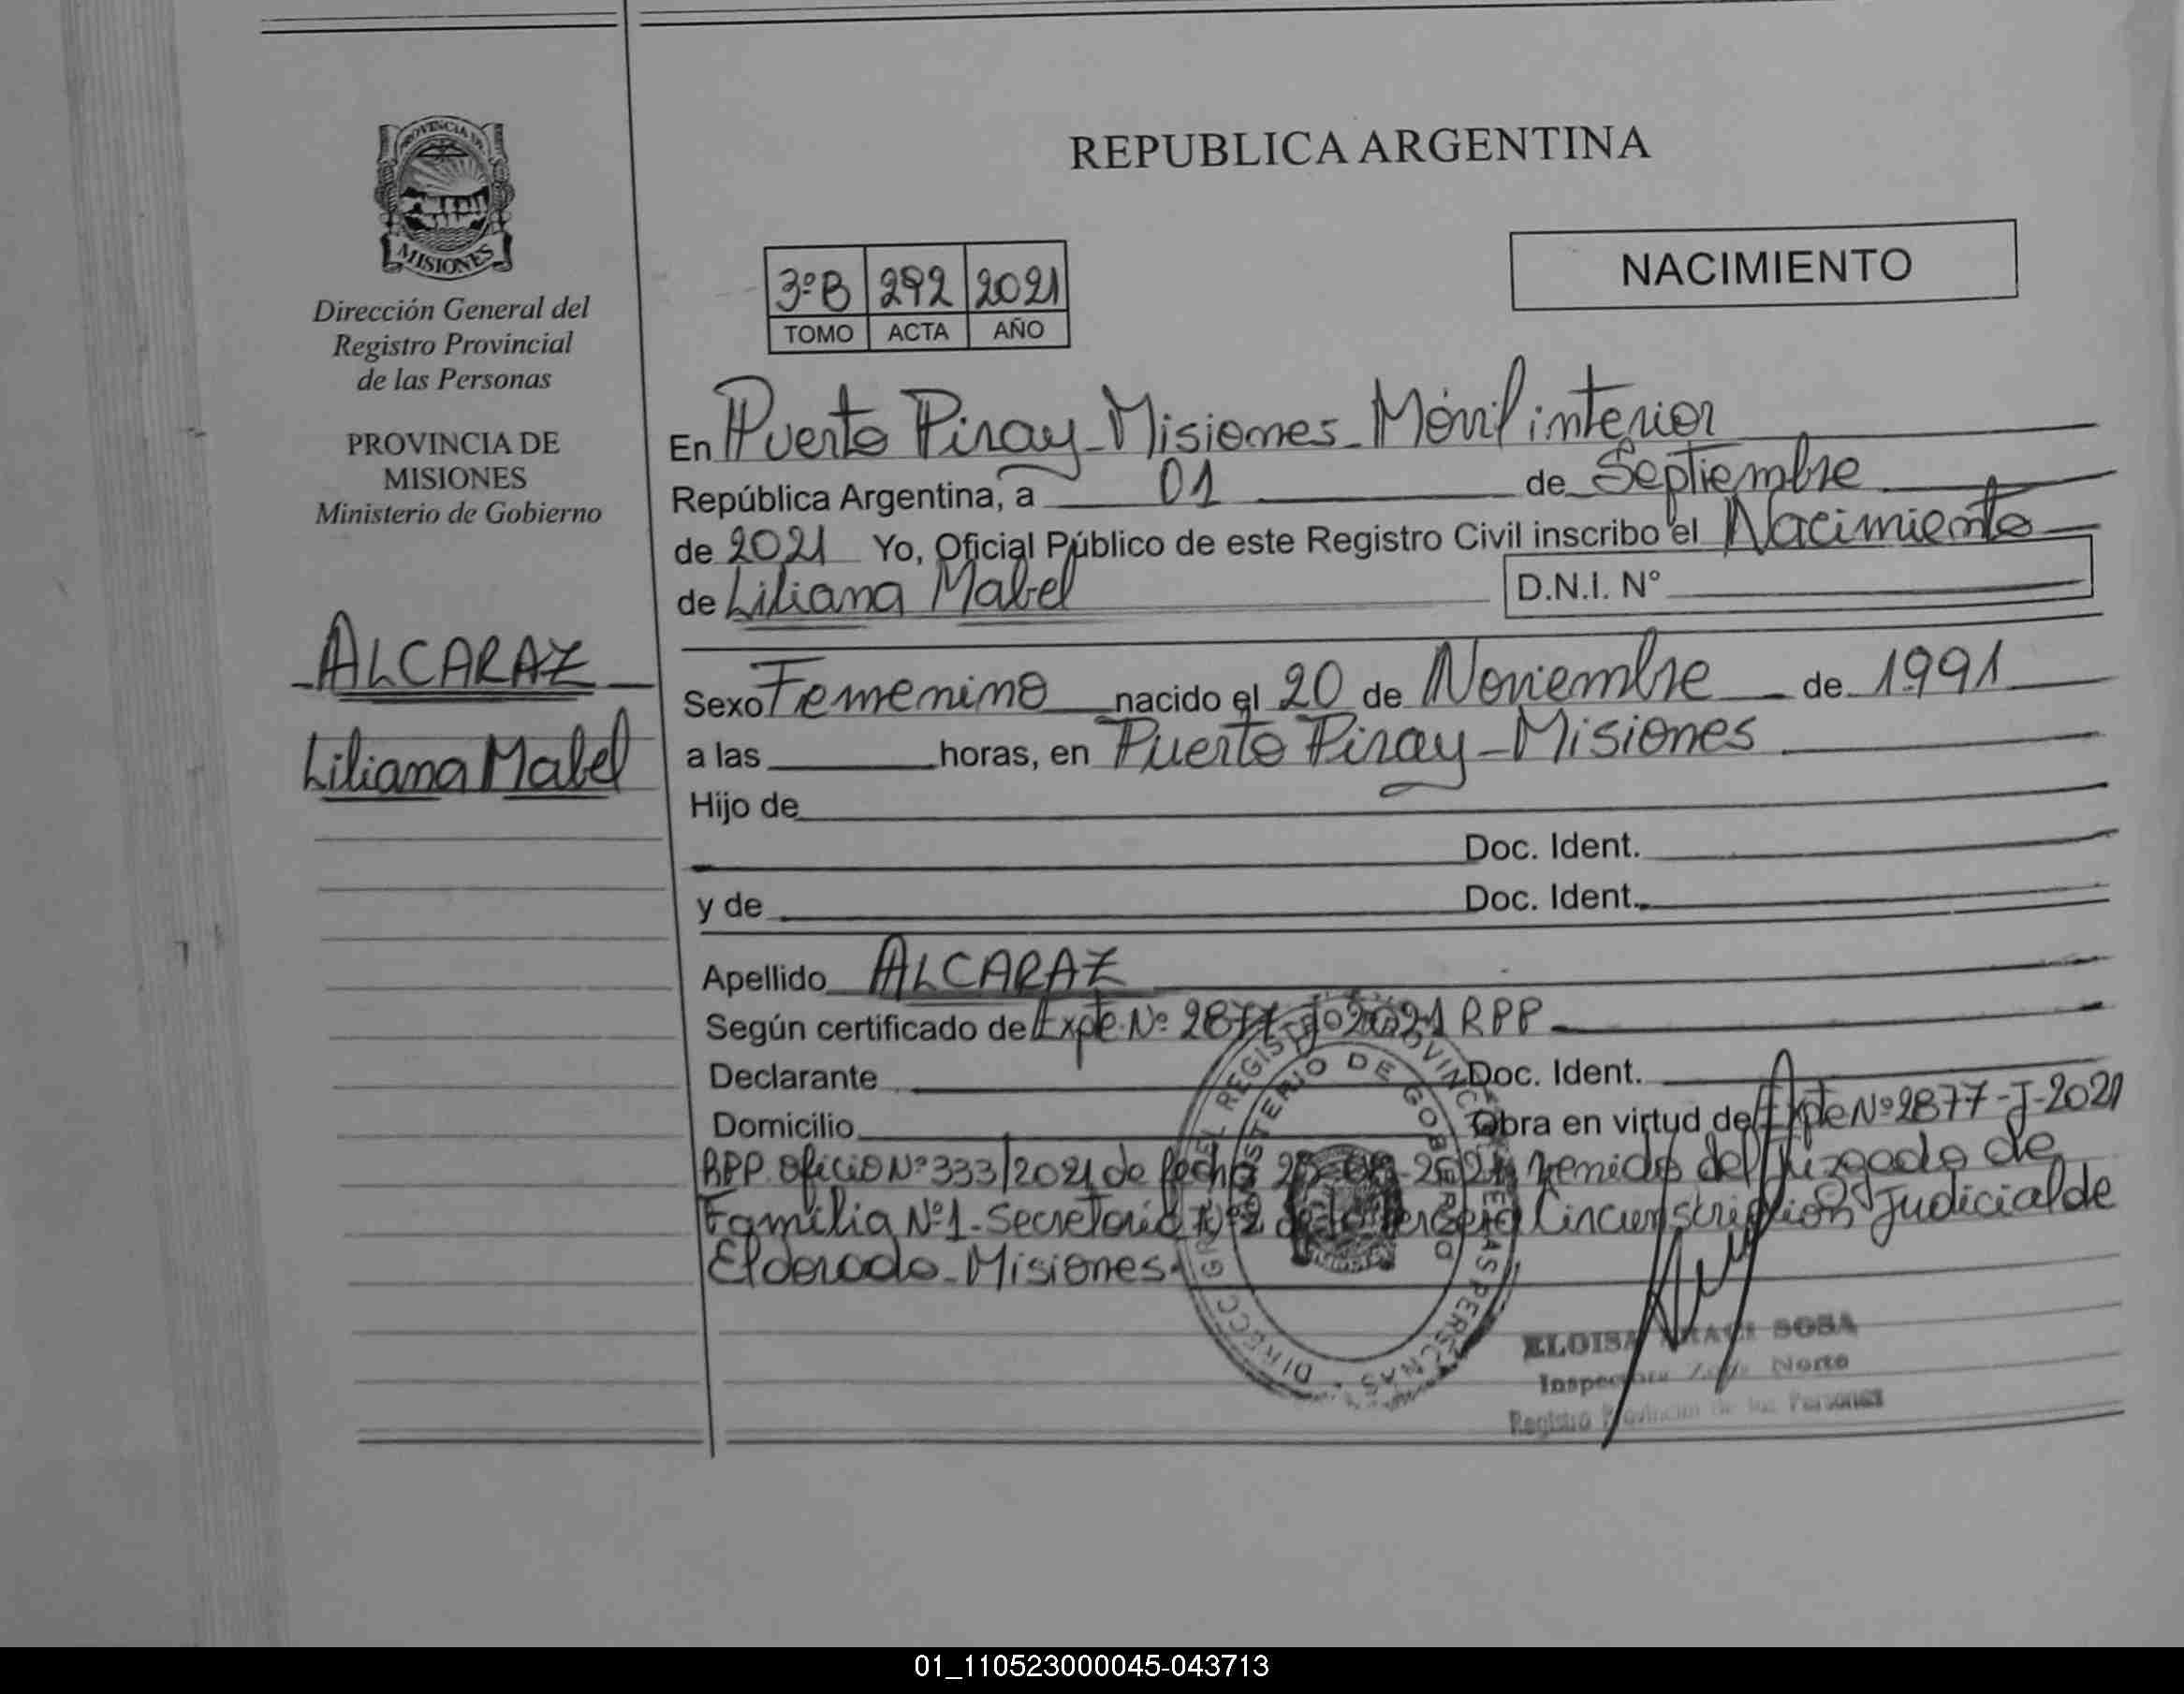 REPUBLICA ARGENTINA
PROVINCIA DE
MISIONES
Dirección General del
Registro Provincial
de las Personas
PROVINCIA DE
MISIONES
Ministerio de Gobierno
ALCARAZ
Liliana Mabel
NACIMIENTO
3ºB 292 2021
TOMO ACTA AÑO
En Puerto Piray - Misiones - Móvil interior
República Argentina, a 01 de Septiembre
de 2021 Yo, Oficial Público de este Registro Civil inscribo el Nacimiento
de Liliana Mabel D.N.I. N°
Sexo Femenino nacido el 20 de Noviembre de 1991
a las horas, en Puerto Piray - Misiones
Hijo de
Doc. Ident.
y de Doc. Ident.
Apellido ALCARAZ
Según certificado de Expte. Nº 2877-J-2021 RPP
Declarante Doc. Ident.
Domicilio Obra en virtud de Expte Nº 2877-J-2021
RPP. Oficio Nº 333/2021 de fecha 2021 remido del Juzgado de
Familia Nº1 - Secretaria Nº2 de la Tercera Circunscripción Judicial de
Eldorado - Misiones.
MINISTERIO DE GOBIERNO
ELOISA SOSA
Inspectora Zona Norte
Registro Provincial de las Personas
01_110523000045-043713